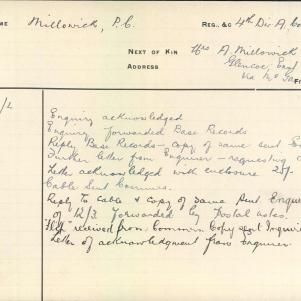 ME Millowick, P.C. REG., &C 4th Div. A. Co
NEXT OF KIN Mrs A. Millowick
ADDRESS Glencoe, East
Via
Enquiry acknowledged
Enquiry forwarded Base Records
Reply Base Records - copy of same sent E
Further letter from Enquirer - requesting
Letter acknowledged with enclosure 25/-
Cable Sent Commrs.
Reply to cable & copy of same sent Enqui
of 12/3 forwarded by Postal
received from Common Copy sent Inquir
Letter of acknowledgment from Enquirer